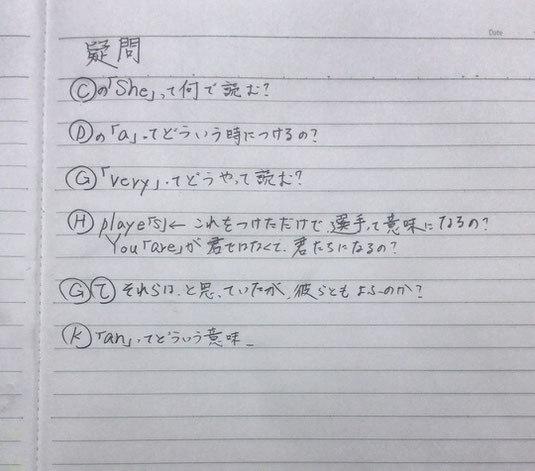 Date
疑問
Ⓒの「She」って何で読む?
Ⓓの「a」ってどういう時につけるの?
Ⓖ「very」ってどうやって読む?
Ⓗ player「s」← これをつけただけで、選手って意味になるの?
You「are」が君ではなくて、君たちになるの?
Ⓖ て それらは、と思っていたが、彼らともよぶのか?
Ⓚ「an」ってどういう意味